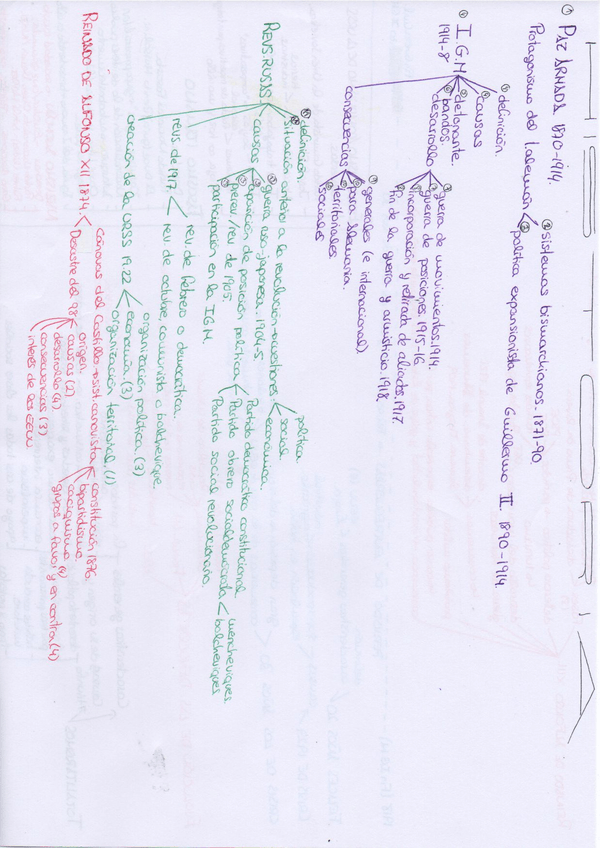 ① PAZ ARMADA 1870-1914.
Protagonismo del I.alemán
② sistemas bismarckianos.-1871-90.
③ política expansionista de Guillermo II. 1890-1914.
④ I.G.M
1914-8
① definición.
② causas
③ detonante.
④ bandos.
desarrollo
guerra de movimientos.1914.
guerra de posiciones.1915-16
incorporación y retirada de aliados.1917.
fin de la guerra y armisticio.1918
consecuencias
generales (e internacional)
para Alemania.
territoriales
sociales
REVS.RUSAS
definición.
situación anterior a la revolución-cuestiones:
política.
económica.
social
causas
guerra ruso japonesa.-1904-5.
posición de posición política
Partido democrático constitucional
Partido obrero socialdemócrata
mencheviques
bolcheviques
Partido social revolucionario.
prerev./rev de 1905.
participación en la I.G.M.
revs. de 1917.
rev. de febrero o democrática.
rev. de octubre comunista o bolchevique.
creación de la URSS 1922
organización política. (3)
economía. (3)
organización territorial. (1)
REINADO DE ALFONSO XII 1874.
Cánovas del Castillo-sist.canovista
constitución 1876.
bipartidismo.
caciquismo (4)
grupos a favor y en contra (4)
Desastre del 98
origen.
causas (2)
desarrollo (4)
consecuencias (3)
interés de los EEUU